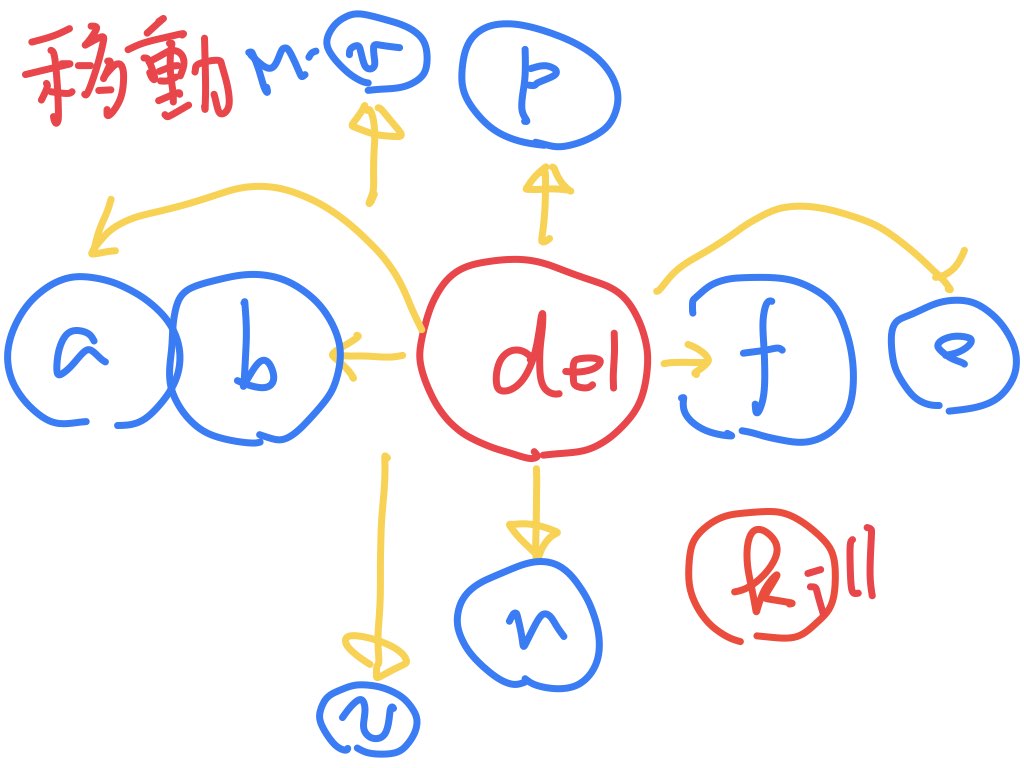 移動
m-v
p
a
b
del
f
e
n
kill
v